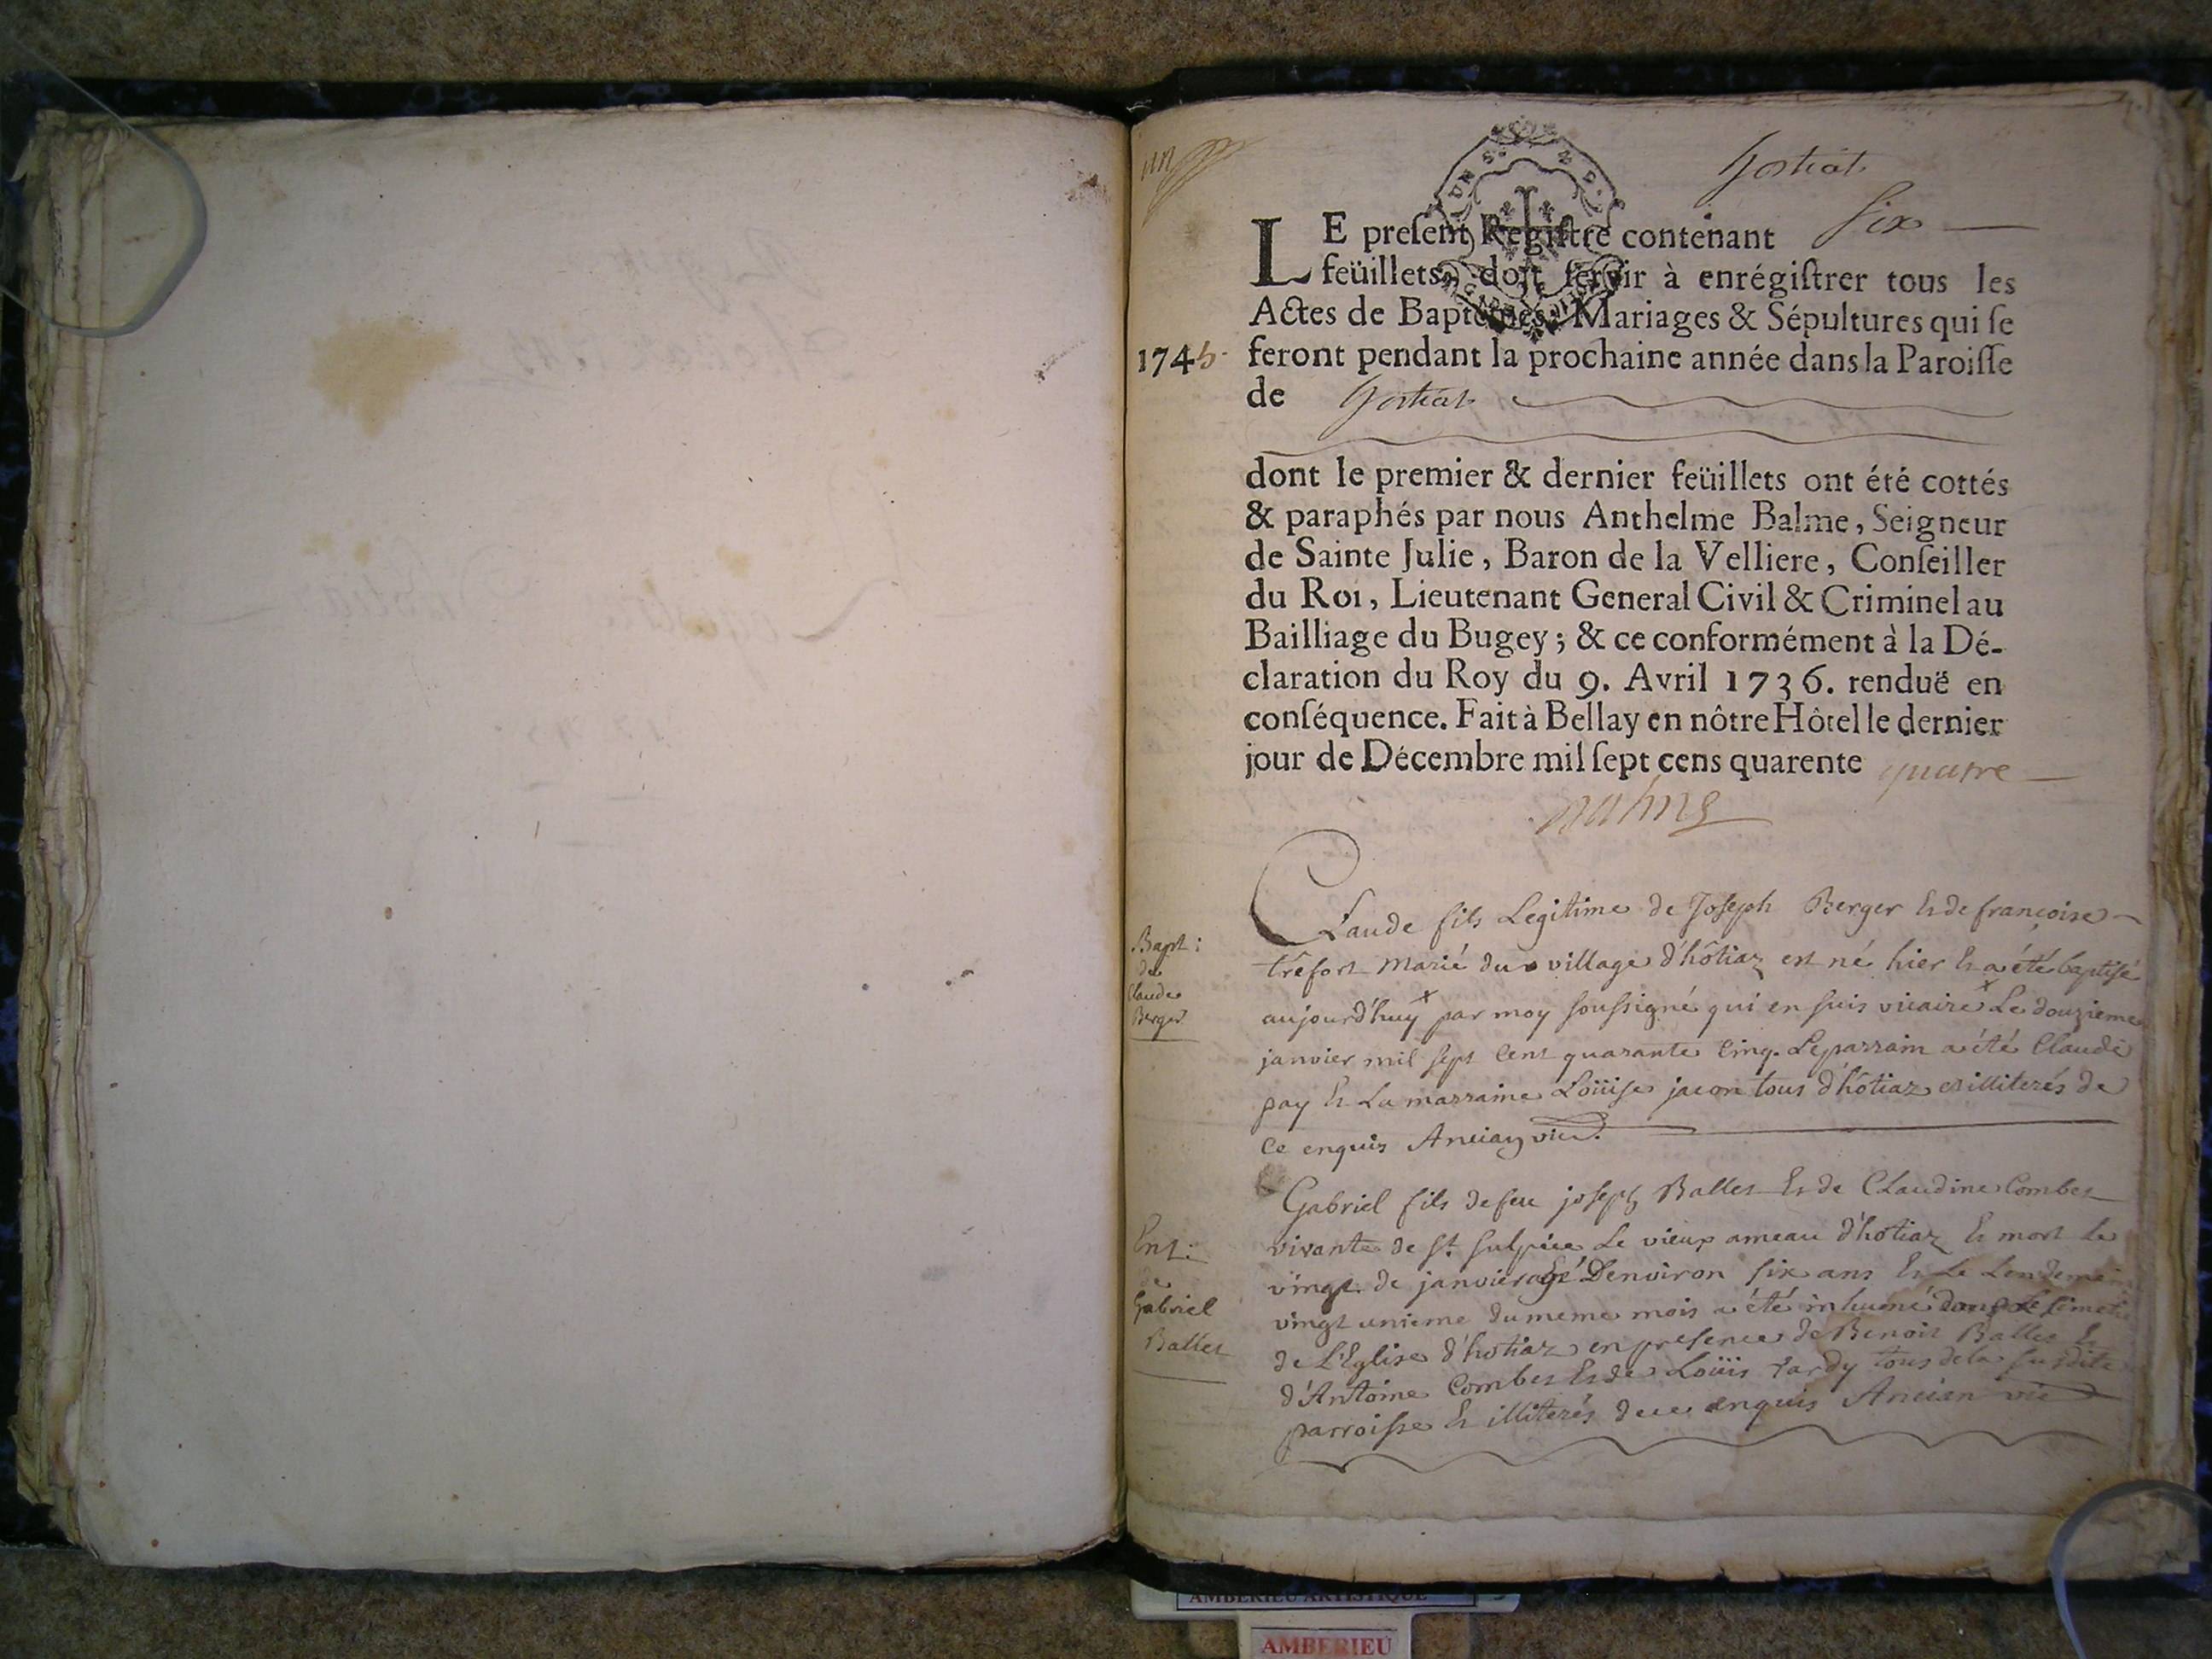 hostiat
LE preſent Regiſtre contenant six
feüillets, doit ſervir à enrégiſtrer tous les
Actes de Baptêmes, Mariages & Sépultures qui ſe
1745 feront pendant la prochaine année dans la Paroiſſe
de hostiat
dont le premier & dernier feüillets ont été cottés
& paraphés par nous Anthelme Balme, Seigneur
de Sainte Julie, Baron de la Velliere, Conſeiller
du Roi, Lieutenant General Civil & Criminel au
Bailliage du Bugey; & ce conformément à la Dé-
claration du Roy du 9. Avril 1736. renduë en
conſéquence. Fait à Bellay en nôtre Hôtel le dernier
jour de Décembre mil ſept cens quarente quatre
Balme
Bapt:
de
Claude
Berger
Claude fils Legitime de Joseph Berger et de françoise
trêfort Marié du village d'hôtiaz est né hier et a été baptisé
aujourd'huy par moy soussigné qui en suis vicaire Le douzieme
janvier mil sept cent quarante cinq. Le parrain a été Claude
pay et La marraine Loüise jacon tous d'hôtiaz et illiterés de
ce enquis Ancian vic.
Ent:
de
Gabriel
Ballet
Gabriel fils de feu joseph Ballet et de Claudine Combet
vivante de st. sulpice Le vieux ameau d'hotiaz Est mort le
vingt de janvier agé D'environ six ans et Le Lendemain
vingt unieme du meme mois a été inhumé dans Le simetie
de L'Eglise d'hotiaz en presence de Benoit Ballet et
d'Antoine Combet et de Loüis tardy tous de la susdite
parroisse et illiterés de ce enquis Ancian vic
AMBERIEU ARTISTIQUE
AMBERIEU